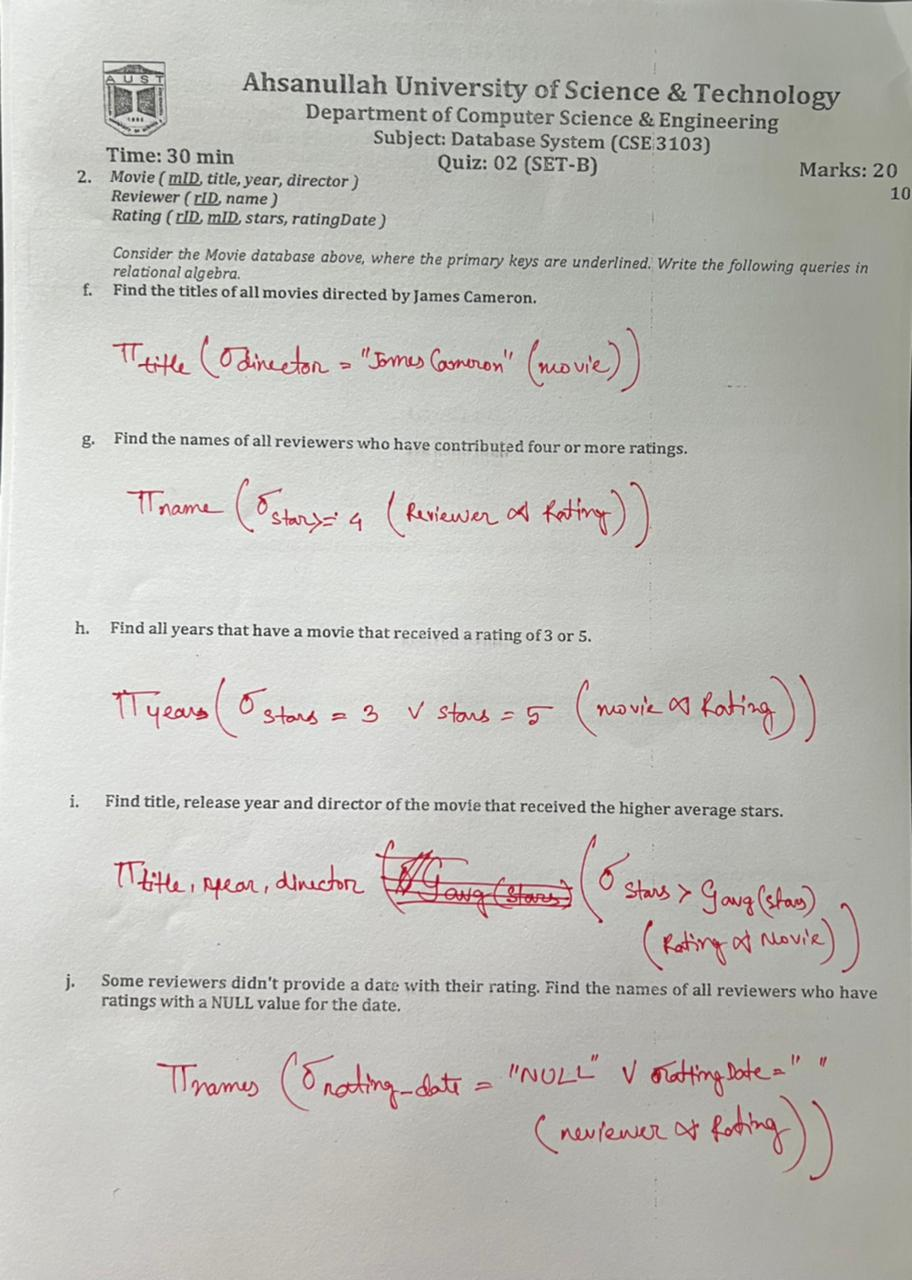 AUST
Ahsanullah University of Science & Technology
Department of Computer Science & Engineering
Subject: Database System (CSE 3103)
Time: 30 min
Quiz: 02 (SET-B)
Marks: 20
10
2. Movie ( mID, title, year, director )
Reviewer ( rID, name )
Rating ( rID, mID, stars, ratingDate )
Consider the Movie database above, where the primary keys are underlined. Write the following queries in
relational algebra.
f. Find the titles of all movies directed by James Cameron.
π title ( σ director = "James Cameron" (movie))
g. Find the names of all reviewers who have contributed four or more ratings.
π name ( σ star>= 4 ( Reviewer ⋈ Rating))
h. Find all years that have a movie that received a rating of 3 or 5.
π years ( σ stars = 3 ∨ stars = 5 (movie ⋈ Rating))
i. Find title, release year and director of the movie that received the higher average stars.
π title, year, director G avg (stars) ( σ stars > G avg (stars)
(Rating ⋈ Movie))
j. Some reviewers didn't provide a date with their rating. Find the names of all reviewers who have
ratings with a NULL value for the date.
π names ( σ rating-date = "NULL" ∨ rattingDate = " "
(reviewer ⋈ Rating))